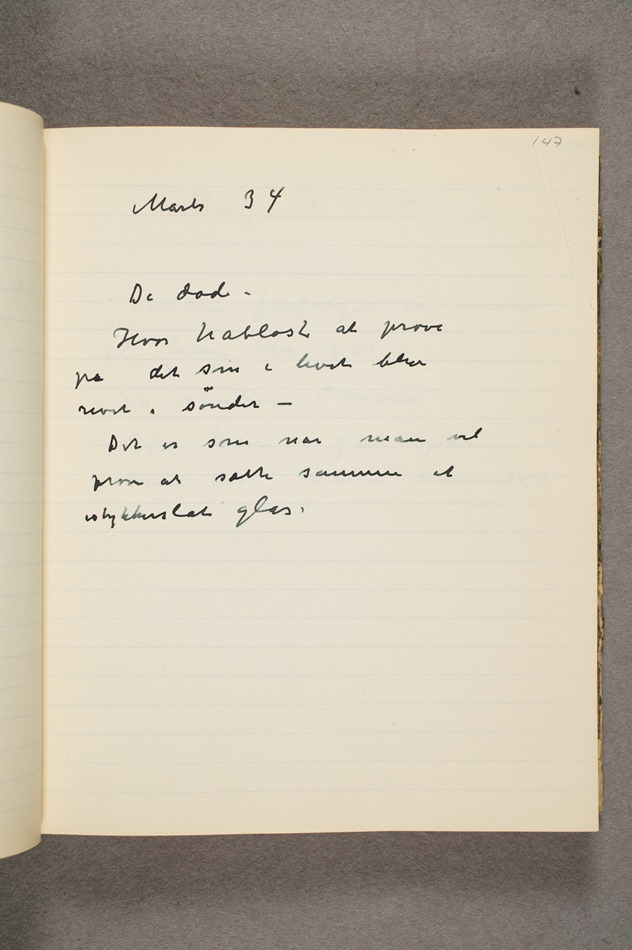 147
Marts 34
De död -
Hvor hablöst at pröve
på det som i livet blev
revet i sönder —
Det er som når man vil
pröve at sätte sammen et
istykkerslåt glas.